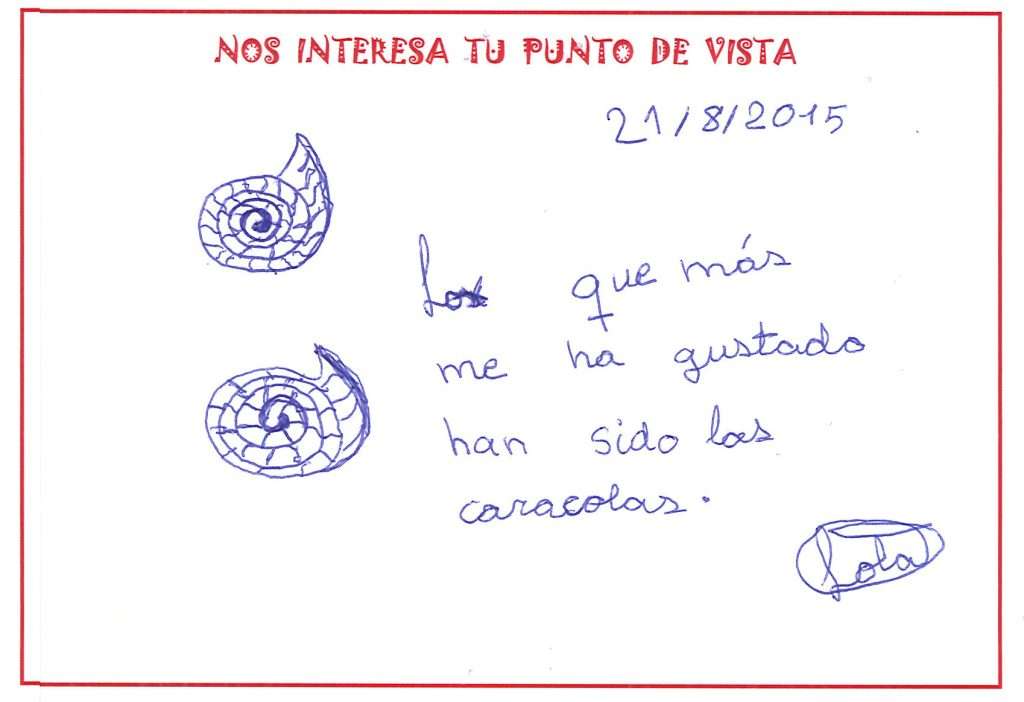 NOS INTERESA TU PUNTO DE VISTA
21/8/2015
Lo que más
me ha gustado
han sido las
caracolas.
Lola